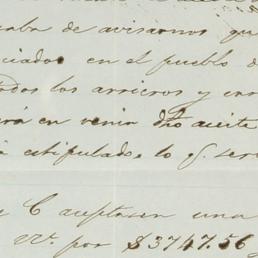 aba de avisarnos qu
ciados en el pueblo d
dos los arrieros y car
rá en venir dho aceite
estipulado, lo q. ser
y C aceptasen una
Vs. por $3747.56